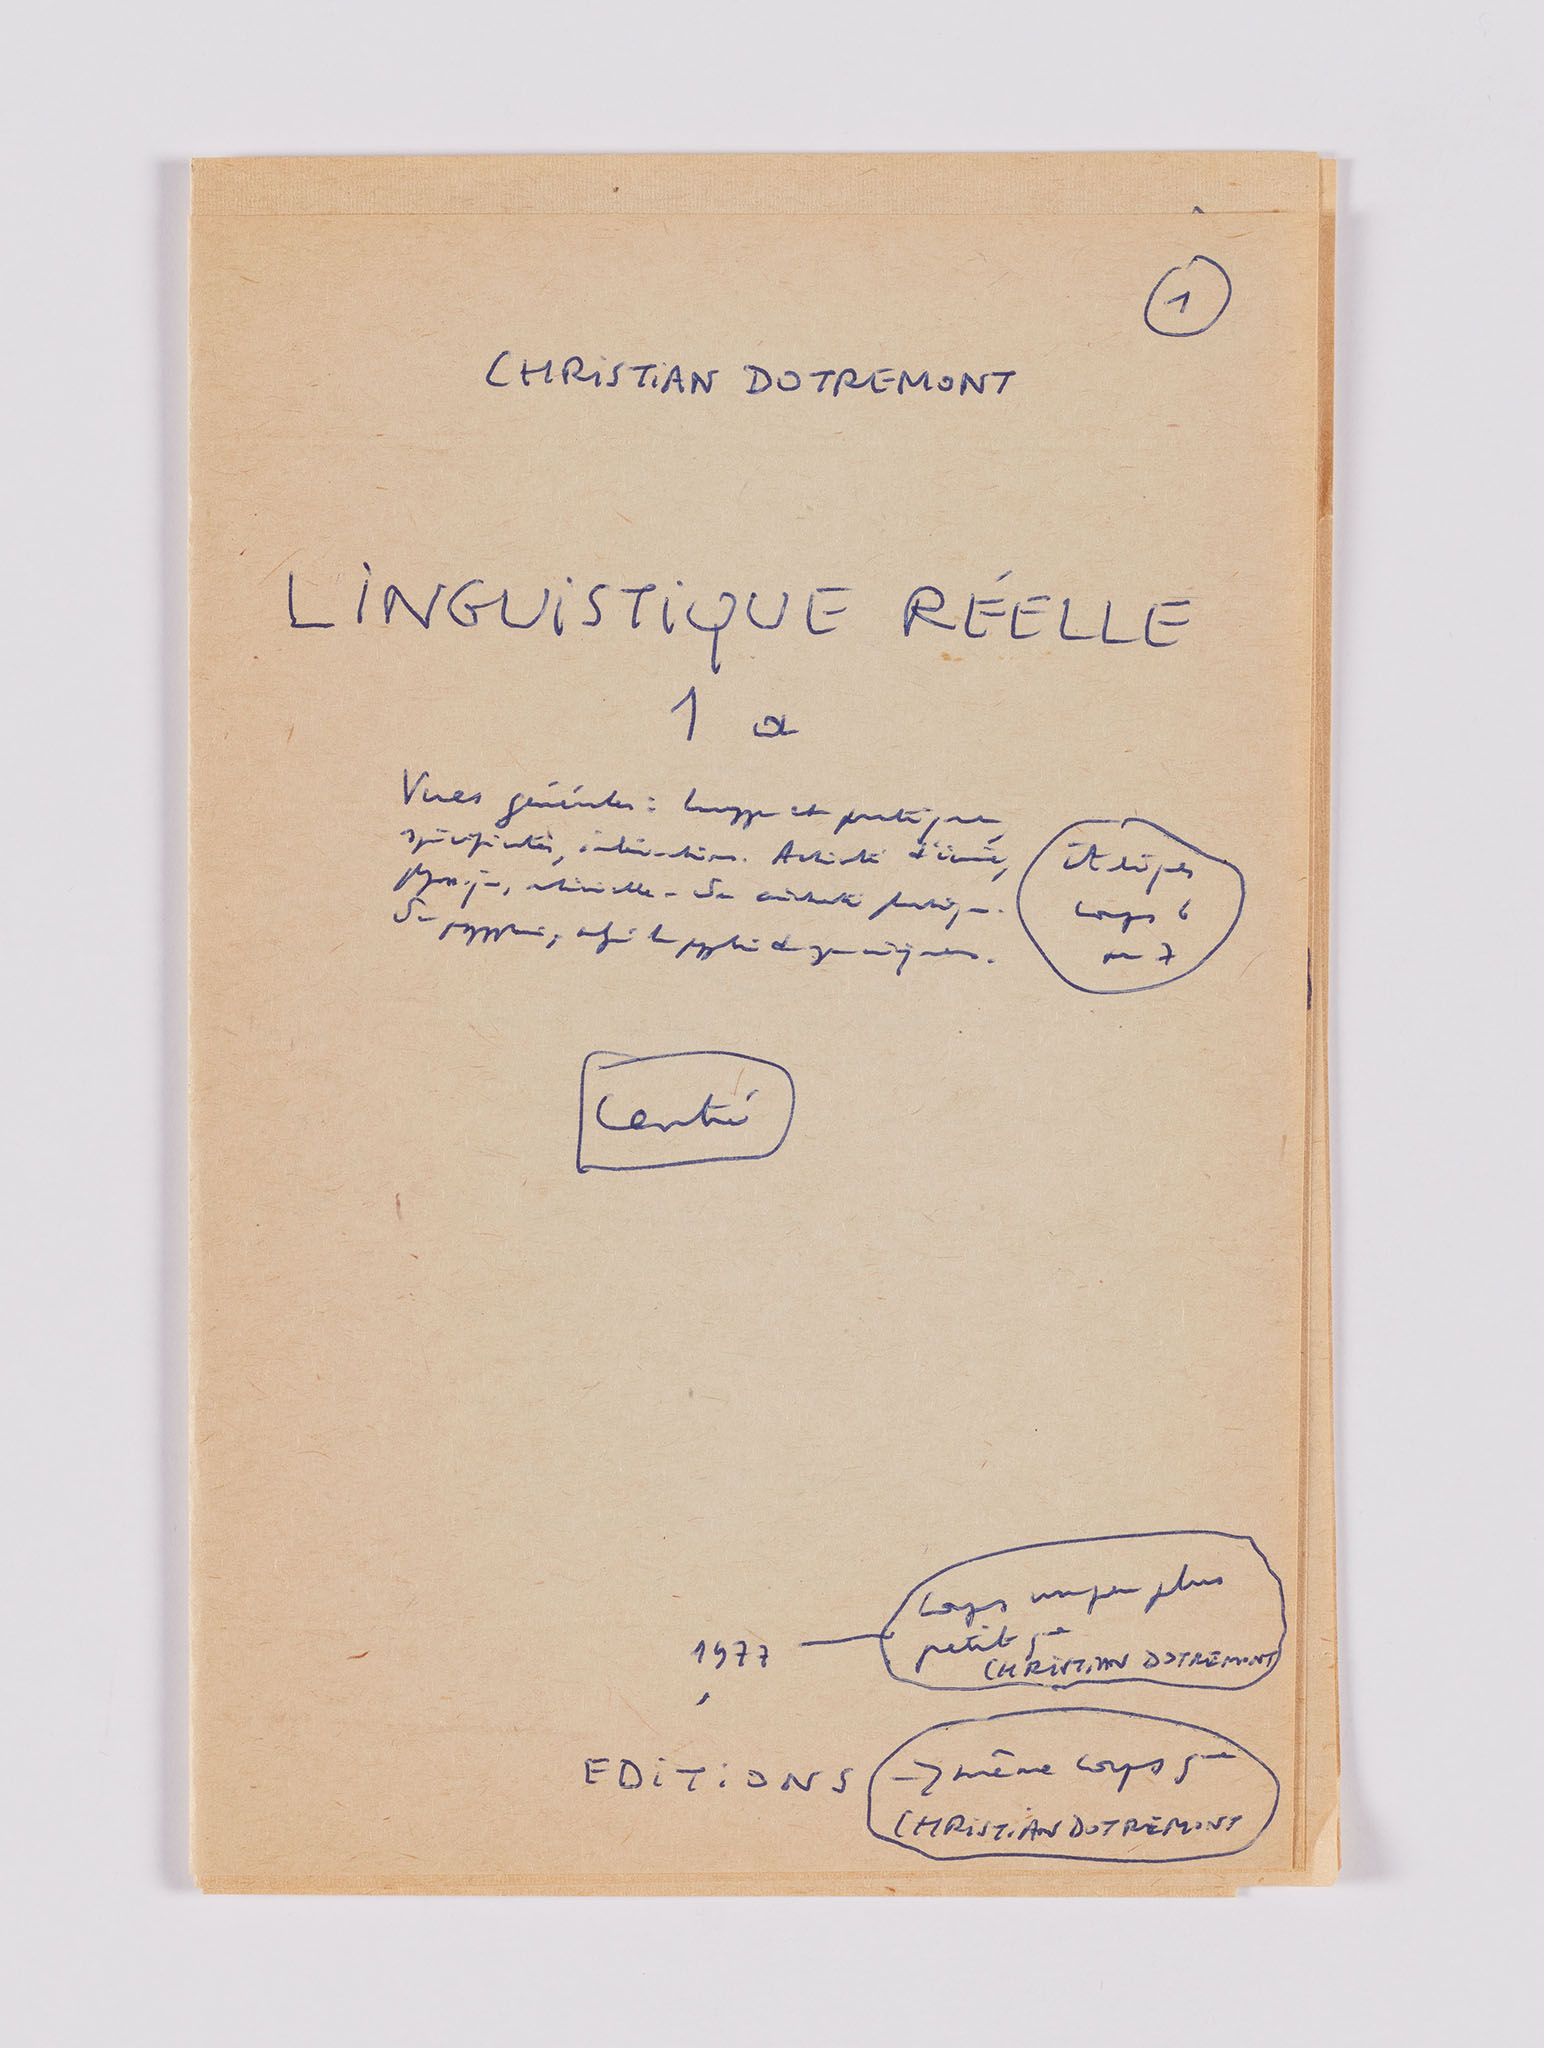 1
CHRISTIAN DOTREMONT
LINGUISTIQUE RÉELLE
1 a
Vues générales : langage et pratique,
spécificités, interactions. Activité d'
Sa pratique.
Sa
italiques
corps 6
ou 7
Centré
corps un peu plus
petit que
1977
CHRISTIAN DOTREMONT
EDITIONS
→ même corps que
CHRISTIAN DOTREMONT